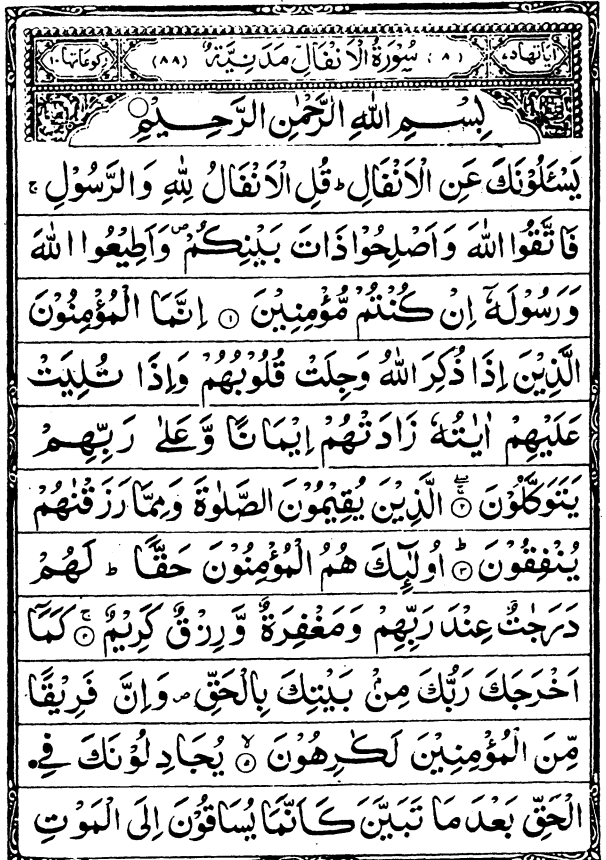 اٰيَاتُهَا ٧٥ (٨) سُوْرَةُ الْاَنْفَالِ مَدَنِيَّةٌ (٨٨) رُكُوْعَاتُهَا ١٠
بِسْمِ اللّٰهِ الرَّحْمٰنِ الرَّحِيْمِ
يَسْـَٔلُوْنَكَ عَنِ الْاَنْفَالِ ؕ قُلِ الْاَنْفَالُ لِلّٰهِ وَالرَّسُوْلِ ۚ
فَاتَّقُوا اللّٰهَ وَاَصْلِحُوْا ذَاتَ بَيْنِكُمْ ۪ وَاَطِيْعُوا اللّٰهَ
وَرَسُوْلَهٗٓ اِنْ كُنْتُمْ مُّؤْمِنِيْنَ ۝١ اِنَّمَا الْمُؤْمِنُوْنَ
الَّذِيْنَ اِذَا ذُكِرَ اللّٰهُ وَجِلَتْ قُلُوْبُهُمْ وَاِذَا تُلِيَتْ
عَلَيْهِمْ اٰيٰتُهٗ زَادَتْهُمْ اِيْمَانًا وَّعَلٰى رَبِّهِمْ
يَتَوَكَّلُوْنَ ۝٢ الَّذِيْنَ يُقِيْمُوْنَ الصَّلٰوةَ وَمِمَّا رَزَقْنٰهُمْ
يُنْفِقُوْنَ ۝٣ اُولٰٓئِكَ هُمُ الْمُؤْمِنُوْنَ حَقًّا ؕ لَهُمْ
دَرَجٰتٌ عِنْدَ رَبِّهِمْ وَمَغْفِرَةٌ وَّرِزْقٌ كَرِيْمٌ ۝٤ كَمَآ
اَخْرَجَكَ رَبُّكَ مِنْۢ بَيْتِكَ بِالْحَقِّ ۪ وَاِنَّ فَرِيْقًا
مِّنَ الْمُؤْمِنِيْنَ لَكٰرِهُوْنَ ۝٥ يُجَادِلُوْنَكَ فِي
الْحَقِّ بَعْدَ مَا تَبَيَّنَ كَاَنَّمَا يُسَاقُوْنَ اِلَى الْمَوْتِ